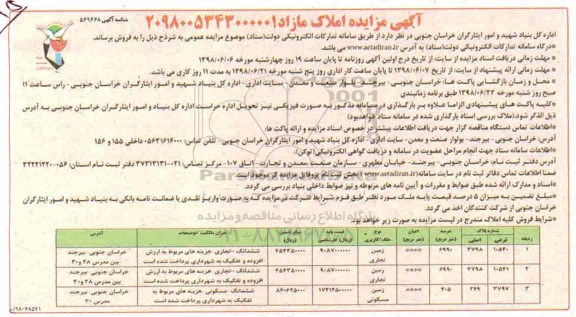 شناسه آگهی ۵۶۹۶۶۸
آگهی مزایده املاک مازاد ۲۰۹۸۰۰۵۳۴۳۰۰۰۰۰۱
اداره کل بنیاد شهید و امور ایثارگران خراسان جنوبی در نظر دارد از طریق سامانه تدارکات الکترونیکی دولت(ستاد) موضوع مزایده عمومی به شرح ذیل را به فروش برساند.
*درگاه سامانه تدارکات الکترونیکی دولت(ستاد) به آدرس www.setadiran.ir می باشد.
*مهلت زمانی دریافت اسناد مزایده از سایت: از تاریخ درج اولین آگهی روزنامه تا پایان ساعت ۱۹ روز چهارشنبه مورخه ۱۳۹۸/۰۶/۰۶
*مهلت زمانی ارائه پیشنهاد از سایت: از تاریخ ۱۳۹۸/۰۶/۰۷ تا پایان ساعت کار اداری روز پنج شنبه مورخه ۱۳۹۸/۰۶/۲۱ به مدت ۱۱ روز کاری می باشد.
*محل و زمان بازگشایی پاکت ها: خراسان جنوبی - بیرجند - بلوار صنعت و معدن - سایت اداری - اداره کل بنیاد شهید و امور ایثارگران خراسان جنوبی - راس ساعت ۱۱
صبح روز شنبه مورخه ۱۳۹۸/۰۶/۲۳ طبق برنامه زمانبندی
*کلیه پاکت های پیشنهادی الزاما علاوه بر بارگذاری در سامانه مذکور به صورت فیزیکی نیز تحویل اداره حراست اداره کل بنیاد و امور ایثارگران خراسان جنوبی به آدرس
ذیل الذکر شود.(ملاک بررسی اسناد بارگذاری شده در سامانه ستاد خواهدبود)
*اطلاعات تماس دستگاه مناقصه گزار جهت دریافت اطلاعات بیشتر در خصوص اسناد مزایده و ارائه پاکت ها:
آدرس: خراسان جنوبی - بیرجند - بولوار صنعت و معدن - سایت اداری - اداره کل بنیاد شهید و امور ایثارگران خراسان جنوبی - تلفن تماس: داخلی ۱۵۵ و ۱۵۶
*اطلاعات سامانه ستاد جهت انجام مراحل عضویت در سامانه و دریافت گواهی الکترونیکی(توکن).
آدرس دفتر ثبت نام: خراسان جنوبی - بیرجند - خیابان مطهری - سازمان صنعت، معدن و تجارت - اتاق ۱۰۷
*اسناد و مدارک ارائه شده طبق ضوابط و مقررات و آیین نامه های مربوطه و نیز ضوابط داخلی بنیاد بررسی می گردد.
*مبلغ تضمین به میزان ۵ درصد قیمت پایه ملک مورد نظر طبق فرم شرایط شرکت در مزایده که به صورت واریز نقدی یا ضمانت نامه بانکی به بنیاد شهید و امور ایثارگران
خراسان جنوبی از شرکت کنندگان اخذ می گردد.
*شرایط فروش کلیه املاک مندرج در لیست مزایده به صورت زیر خواهد بود.
ردیف پلاک فرعی اصلی عرصه (متر مربع) اعیان (متر مربع) نوع ملک/کاربری آدرس
۱ ۱۰۵۴۰ ۳۷۹۸ ۶۹۹۰ **** زمین تجاری ۹۰۸۷۰۰۰۰۰ ۴۵۴۳۵۰۰۰۰ ششدانگ -تجاری -هزینه های مربوط به ارزش افزوده و تفکیک به شهرداری پرداخت شده است خراسان جنوبی -بیرجند بین مدرس ۲۸ و ۳۰
۲ ۱۰۵۴۱ ۳۷۹۸ ۶۹۹۰ **** زمین تجاری ۹۰۸۷۰۰۰۰۰ ۴۵۴۳۵۰۰۰۰ ششدانگ -تجاری -هزینه های مربوط به ارزش افزوده و تفکیک به شهرداری پرداخت شده است خراسان جنوبی -بیرجند بین مدرس ۲۸ و ۳۰
۳ ۳۷۹۷ ۲۴۹ ۴۰۵ **** زمین مسکونی ششدانگ -مسکونی -هزینه های مربوط به تفکیک به شهرداری پرداخت شده است خراسان جنوبی -بیرجند مدرس ۳۰